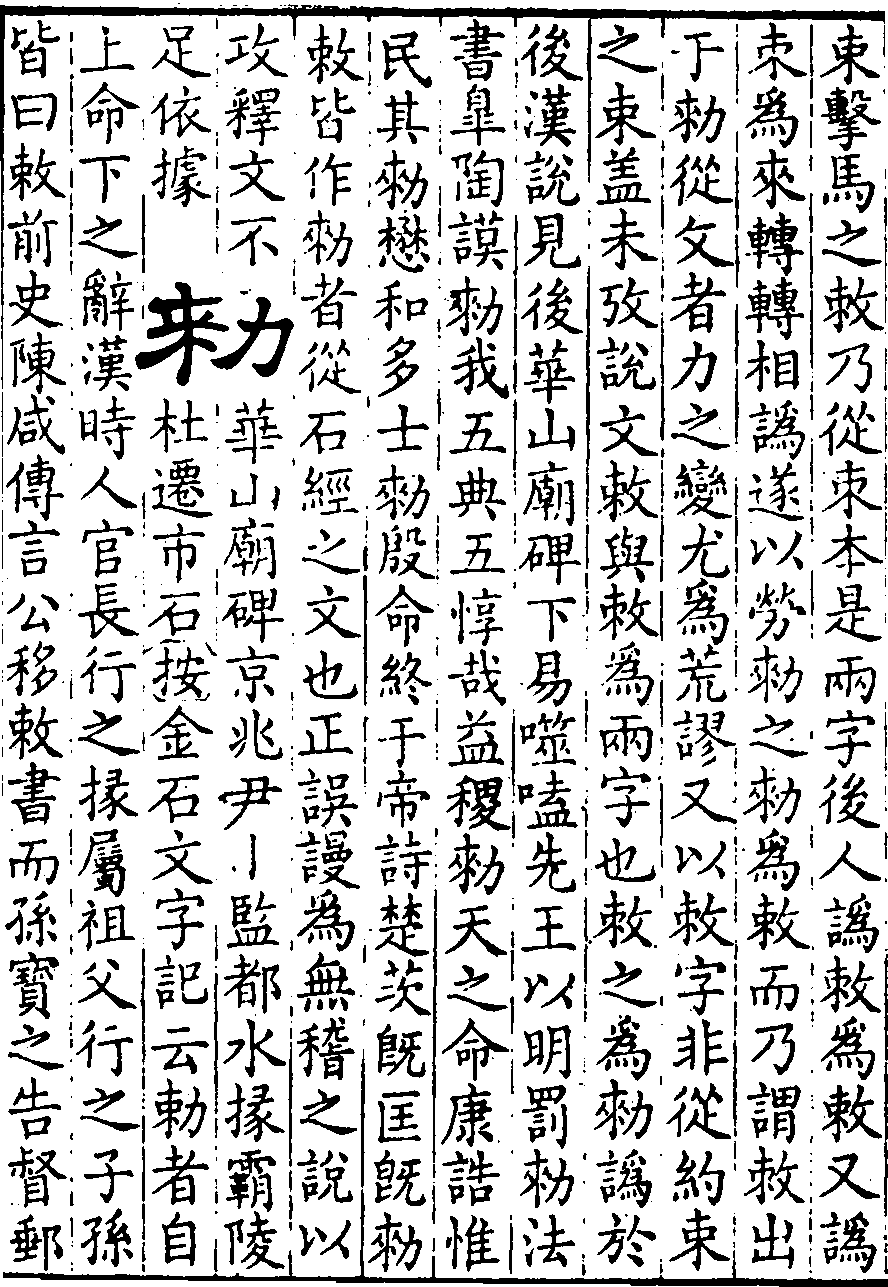 束擊馬之敇乃從朿本是兩字後人譌敇爲敕又譌
朿爲來轉轉相譌遂以勞勑之勑爲敕而乃謂敇出
于勑從攵者力之變尤爲荒謬又以敕字非從約束
之束盖未攷說文敇與敕爲兩字也敕之爲勑譌於
後漢說見後華山廟碑下易噬嗑先王以明罰勑法
書臯陶謨勑我五典五惇哉益稷勑天之命康誥惟
民其勑懋和多士勑殷命終于帝詩楚茨旣匡旣勑
敕皆作勑者從石經之文也正誤謾爲無稽之說以
攻釋文不
足依據
勑
華山廟碑京兆尹丨監都水掾霸陵
杜遷市石按金石文字記云勅者自
上命下之辭漢時人官長行之掾屬祖父行之子孫
皆曰敕前史陳咸傳言公移敕書而孫寶之告督郵